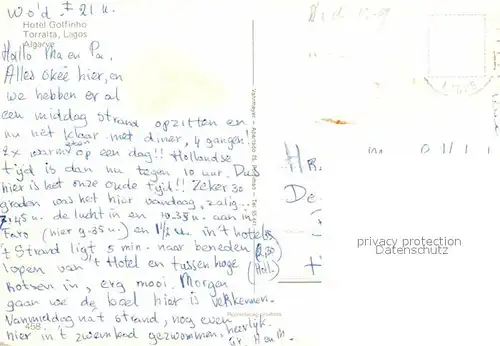 Wo'd. ± 21 u.
Hotel Golfinho
Torralta, Lagos
Algarve
Hallo Ma en Pa,
Alles okee hier, en
we hebben er al
een middag strand opzitten en
nu net klaar met diner, 4 gangen!
2x warm eten op een dag!! Hollandse
tijd is dan nu tegen 10 uur. Dus
hier is het onze oude tijd!! Zeker 30
graden was het hier vandaag, zalig...
7.45 u. de lucht in en 10.35 u. aan in
Faro (hier 9.35 u) en 11½ u. in 't hotel
't Strand ligt 5 min. naar beneden
lopen van 't Hotel en tussen hoge (Holl.)
rotsen in, erg mooi. Morgen
gaan we de boel hier is verkennen.
Vanmiddag na 't strand, nog even
hier in 't zwembad gezwommen. heerlijk.
458
Gr. H en M.
privacy protection
Datenschutz